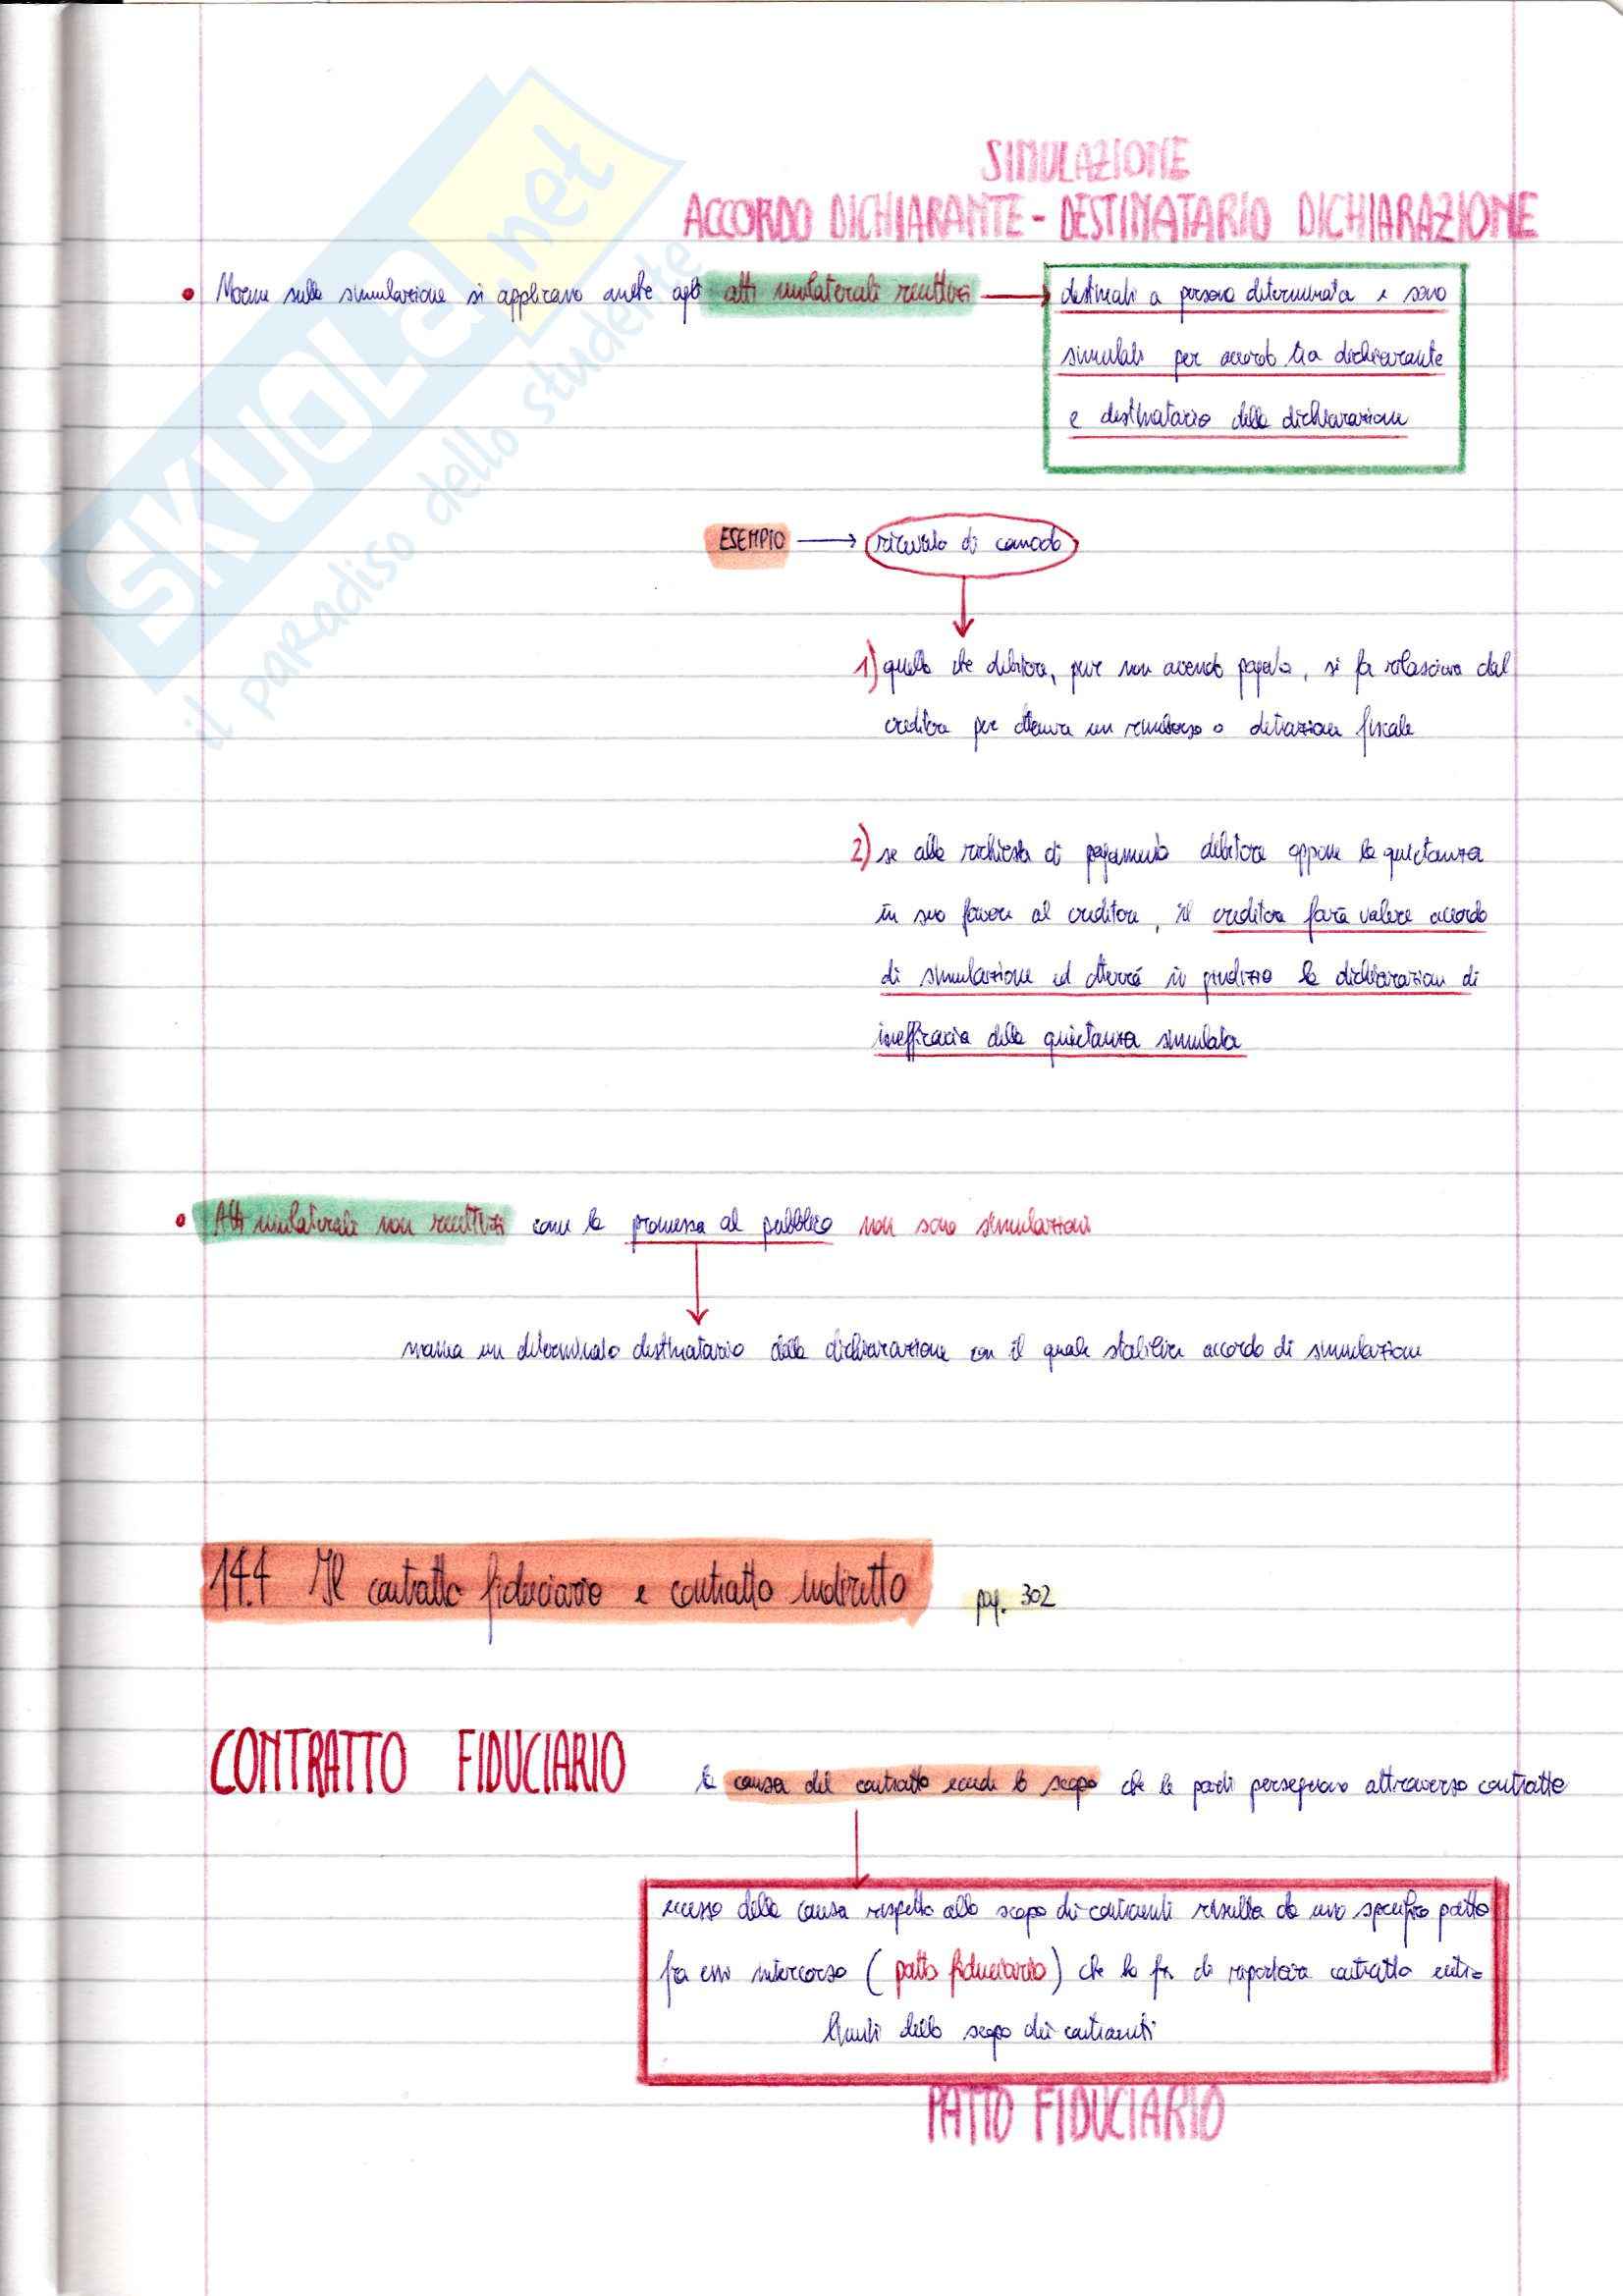 SIMULAZIONE
ACCORDO DICHIARANTE - DESTINATARIO DICHIARAZIONE
• Norme sulla simulazione si applicano anche agli atti unilaterali recettizi → destinati a persona determinata e sono
simulati per accordo tra dichiarante
e destinatario della dichiarazione
ESEMPIO → di comodo
1) quella che debitore, pur non avendo pagato, si fa rilasciare dal
creditore per ottenere un rimborso o detrazione fiscale
2) se alla richiesta di pagamento debitore oppone la quietanza
in suo favore al creditore, il creditore farà valere accordo
di simulazione ed otterrà in giudizio la dichiarazione di
inefficacia della quietanza simulata
• Atti unilaterali non recettizi come la promessa al pubblico non sono simulazioni
manca un determinato destinatario della dichiarazione con il quale stabilire accordo di simulazione
14.4 Il contratto fiduciario e contratto indiretto pag. 302
CONTRATTO FIDUCIARIO la causa del contratto eccede lo scopo che le parti perseguono attraverso contratto
eccesso della causa rispetto allo scopo dei contraenti risulta da uno specifico patto
fra essi intercorso (patto fiduciario) che ha fn di riportare contratto entro
limiti dello scopo dei contraenti
PATTO FIDUCIARIO
SKUOLA.net
il paradiso dello studente